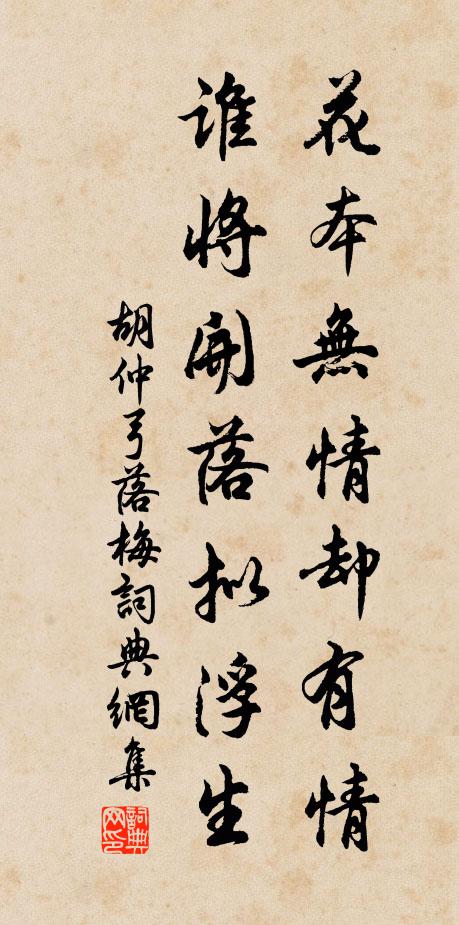 花本無情却有情
誰將開落拟浮生
胡仲弓落梅詞典網集
詞典網印